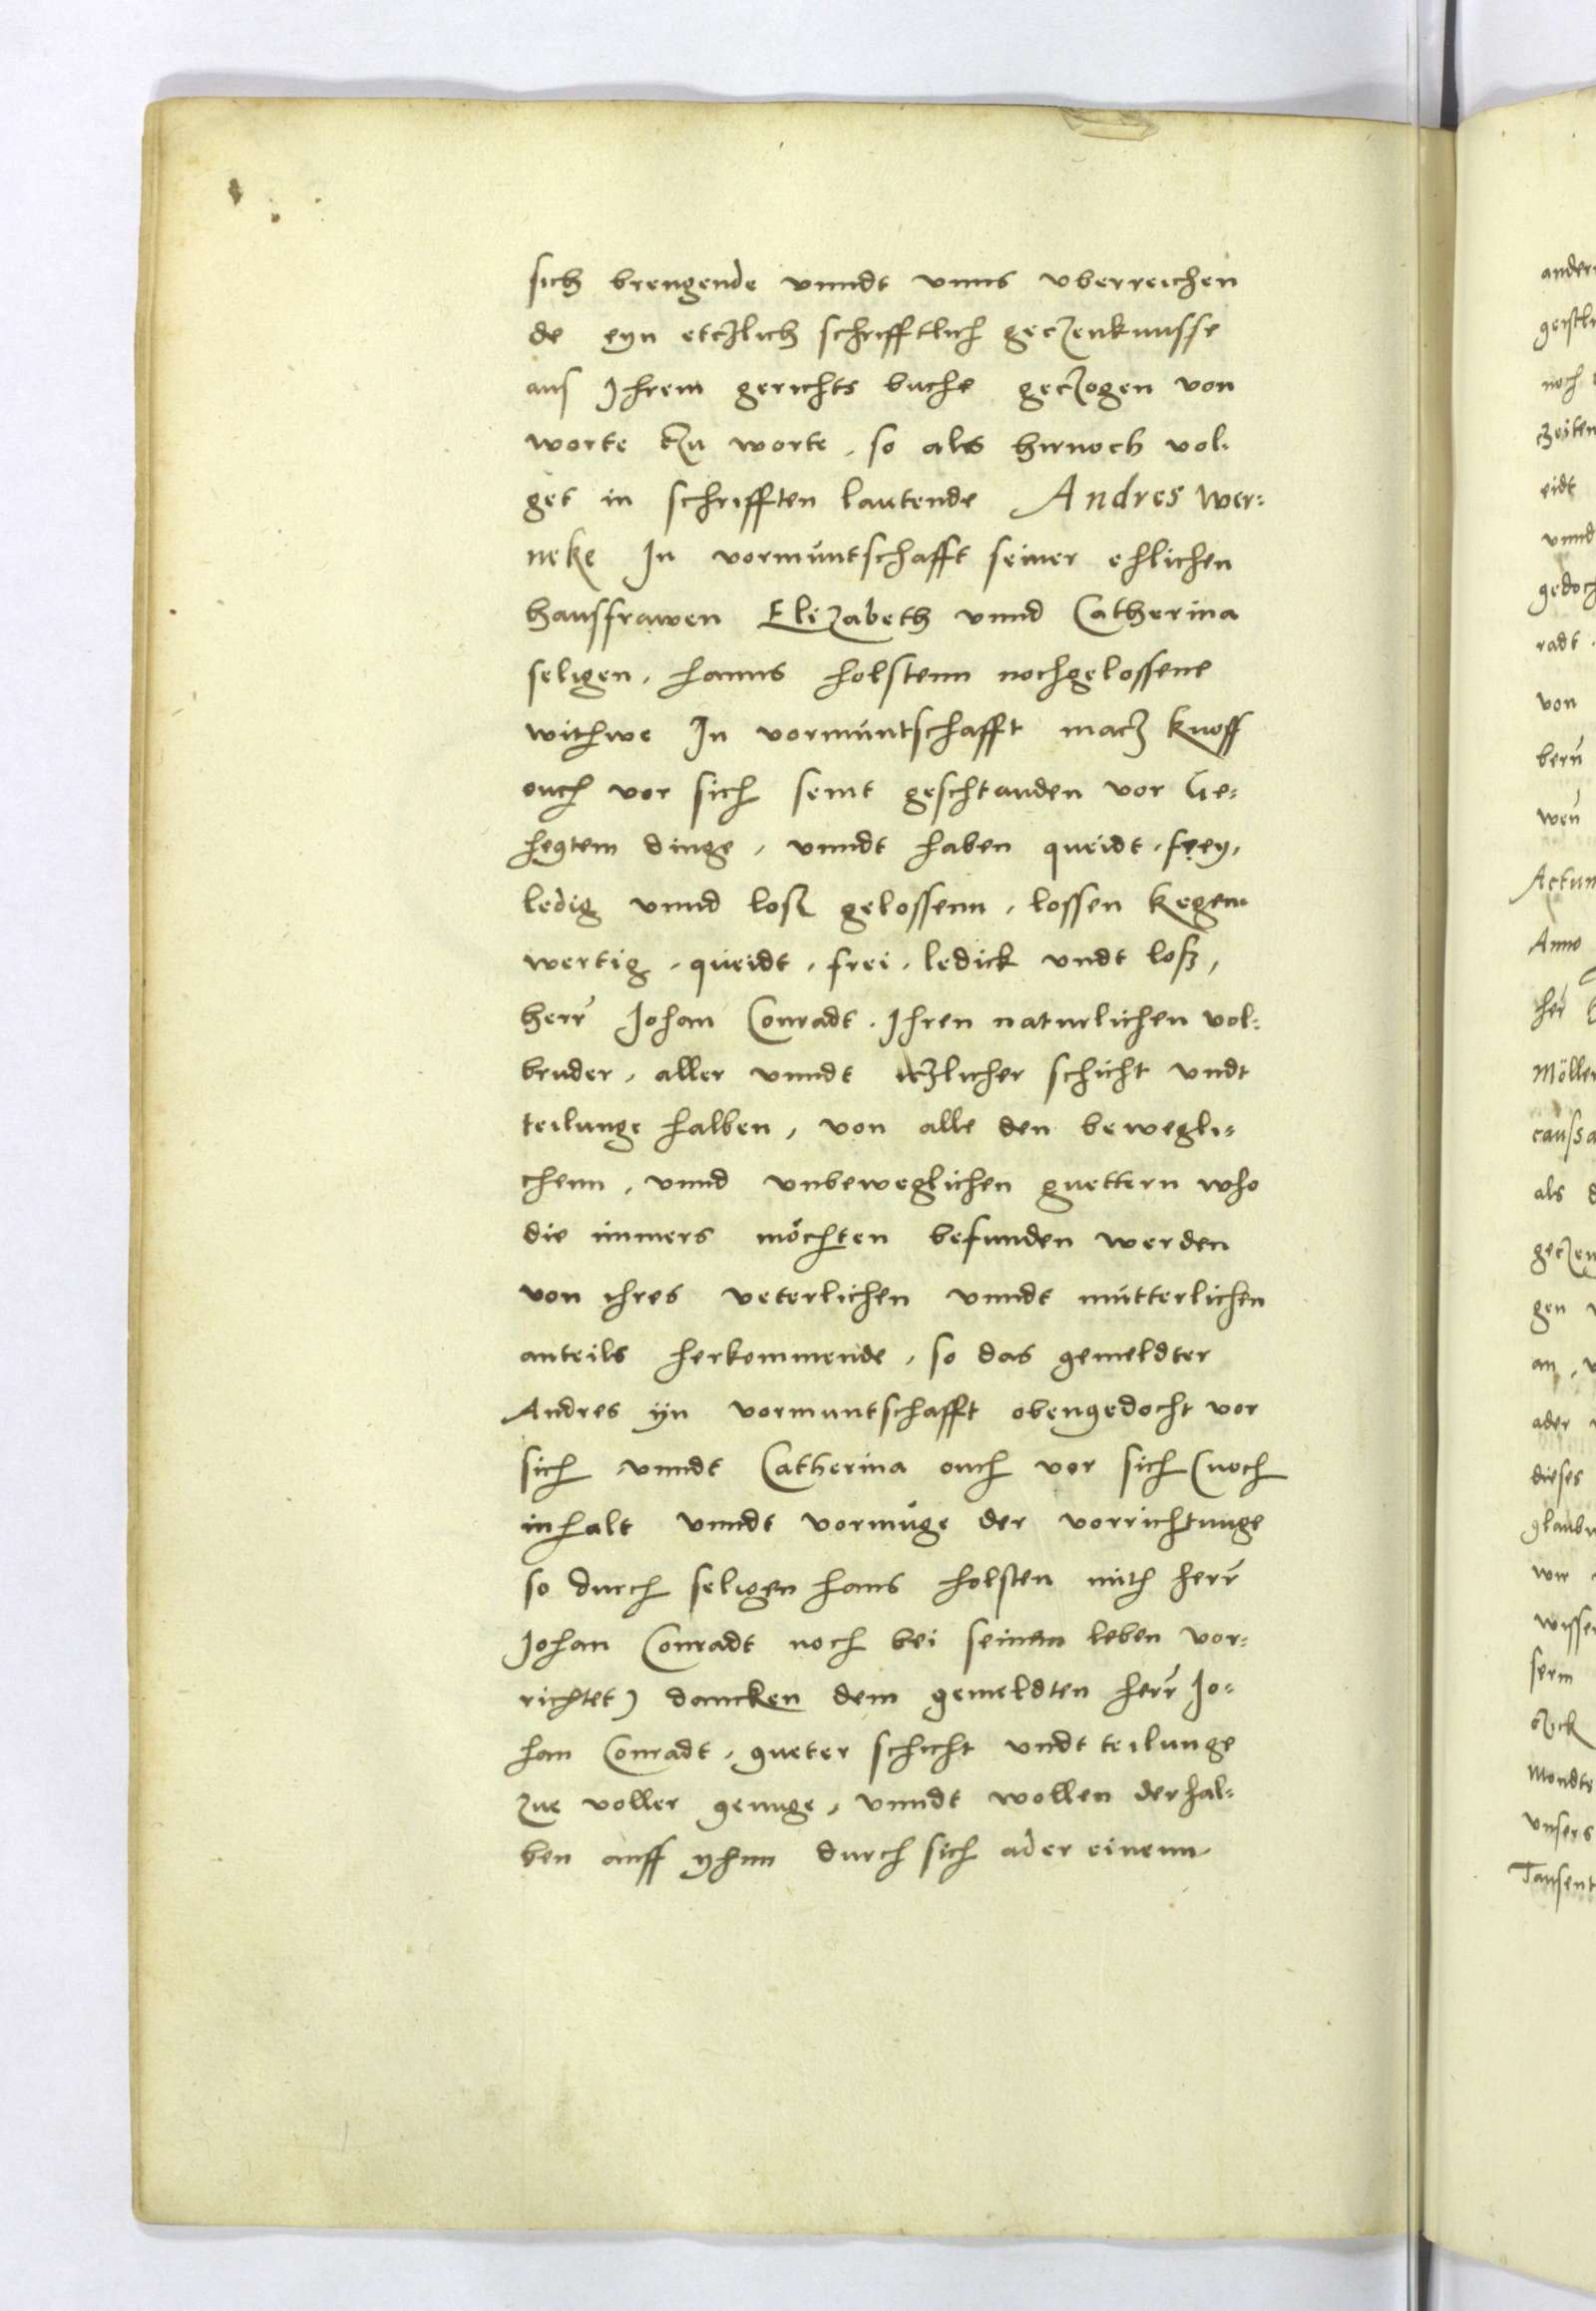 sich brengende vnndt vnns vberreichen
de eyn etczlich schrifftlich geczenknusse
aus Ihrem gerichts buche geczogen von
worte tzu worte, so als hirnoch vol-
get in schrifften lautende Andres Wer-
neke In vormuntschafft seiner ehlichen
hausfrawen Elizabeth vnnd Catherina
seligen, hanns holstenn nochgelossene
withwe In vormuntschafft macz knoff
ouch vor sich semt geschtanden vor Ge-
hegtem dinge, vnndt haben queidt, frey,
ledig vnnd loss gelossenn, lossen kegen
wertig, queidt, frei, ledick vndt loß,
herr Johan Conradt, Ihren naturlichen vol-
bruder, aller vnndt iczlicher schicht vndt
teilunge halben, von alle den bewegli-
chenn, vnnd vnbeweglichen guettern who
die immers möchten befunden werden
von ihres veterlichen vnndt mutterlichen
anteils herkommende, so das gemeldter
Andres ijn vormuntschafft obengedocht vor
sich vnndt Catherina ouch vor sich (noch
inhalt vnndt vormuge der vorrichtunge
so durch seligen hans holsten mith herr
Johan Conradt noch bei seinem leben vor-
richtet) dancken dem gemeldten herr Jo-
han Conradt, gueter schicht vndt teilunge
zue voller genuge, vnndt wollen derhal-
ben auff yhnn durch sich ader einenn
ander
geistli
noch
zeiten
eidt
vnnd
gedoch
radt
von
bern
wen
Actum
Anno
her
Möller
caussa
als
geczen
gen
an, v
ader
dieses
glaub
wir
wisse
serm
Mondte
vnsers
Tausent